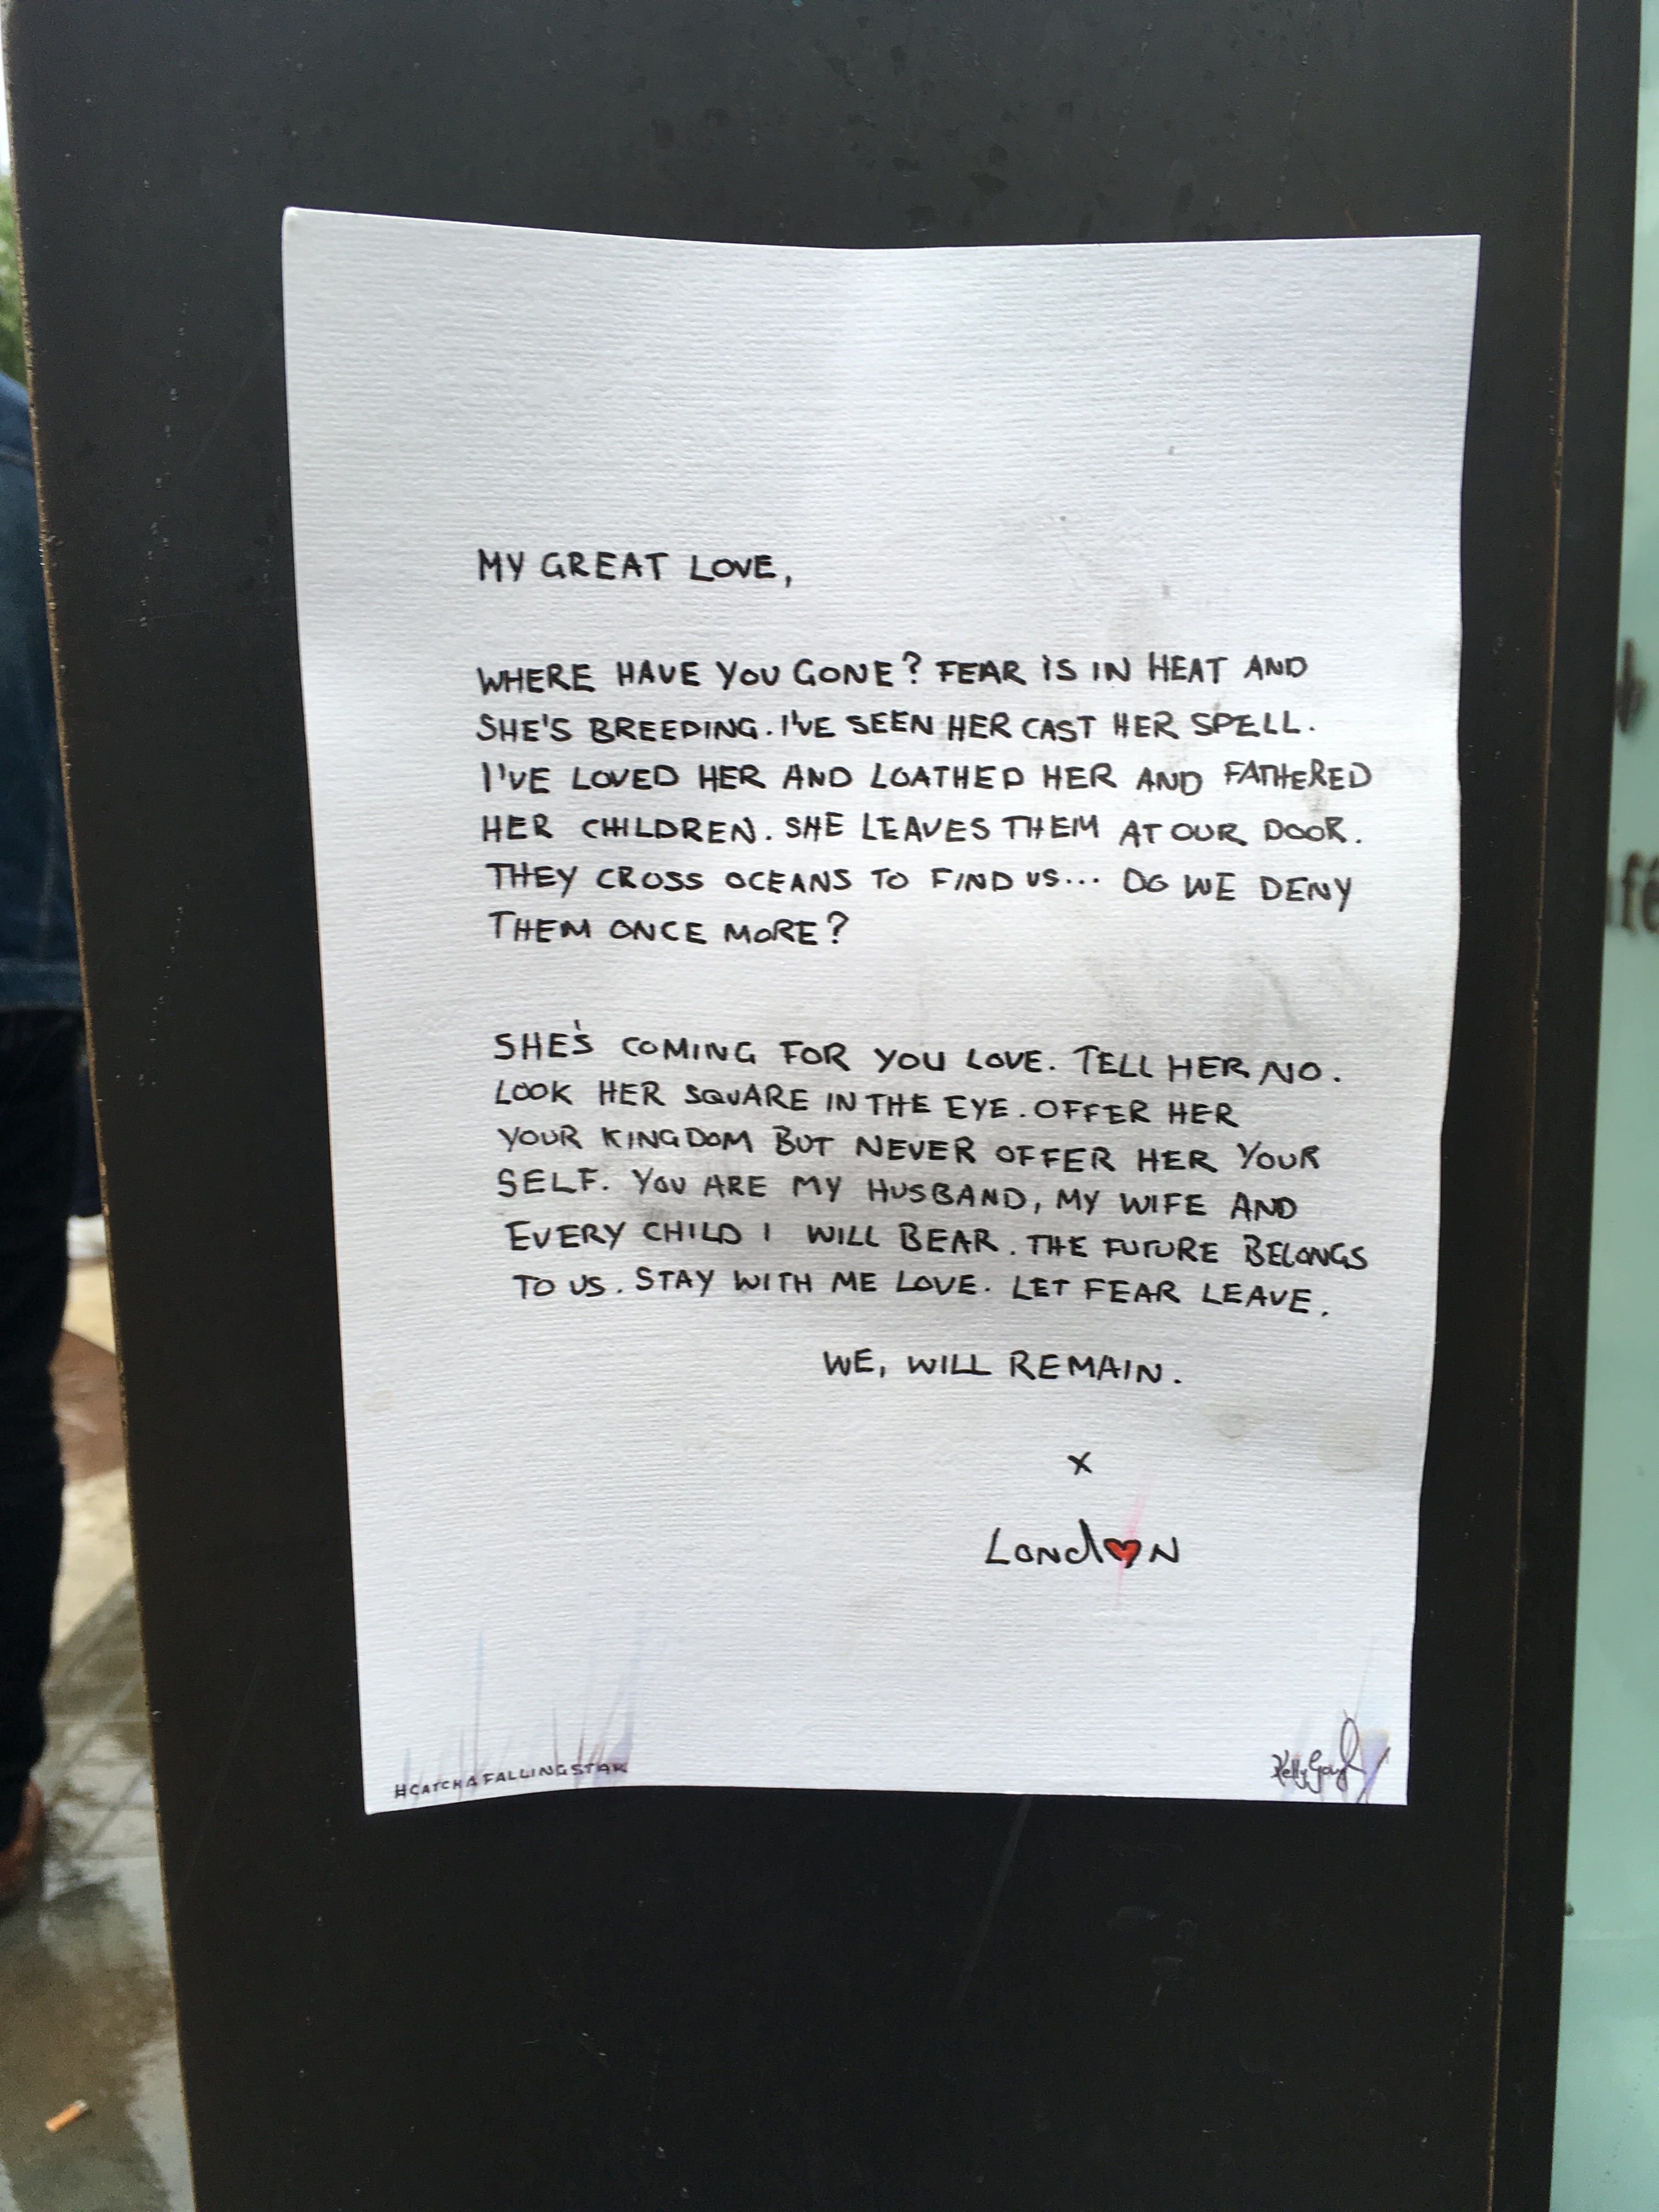 MY GREAT LOVE,
WHERE HAVE YOU GONE? FEAR IS IN HEAT AND
SHE'S BREEDING. I'VE SEEN HER CAST HER SPELL.
I'VE LOVED HER AND LOATHED HER AND FATHERED
HER CHILDREN. SHE LEAVES THEM AT OUR DOOR.
THEY CROSS OCEANS TO FIND US... DO WE DENY
THEM ONCE MORE?
SHE'S COMING FOR YOU LOVE. TELL HER NO.
LOOK HER SQUARE IN THE EYE. OFFER HER
YOUR KINGDOM BUT NEVER OFFER HER YOUR
SELF. YOU ARE MY HUSBAND, MY WIFE AND
EVERY CHILD I WILL BEAR. THE FUTURE BELONGS
TO US. STAY WITH ME LOVE. LET FEAR LEAVE.
WE, WILL REMAIN.
x
Lond♥N
#CATCHAFALLINGSTAR
Kelly